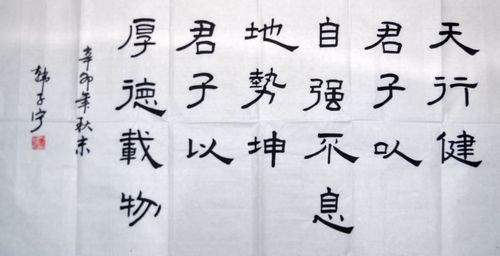 天行健
君子以
自强不息
地勢坤
君子以
厚德載物
辛卯年秋末
韩子宇